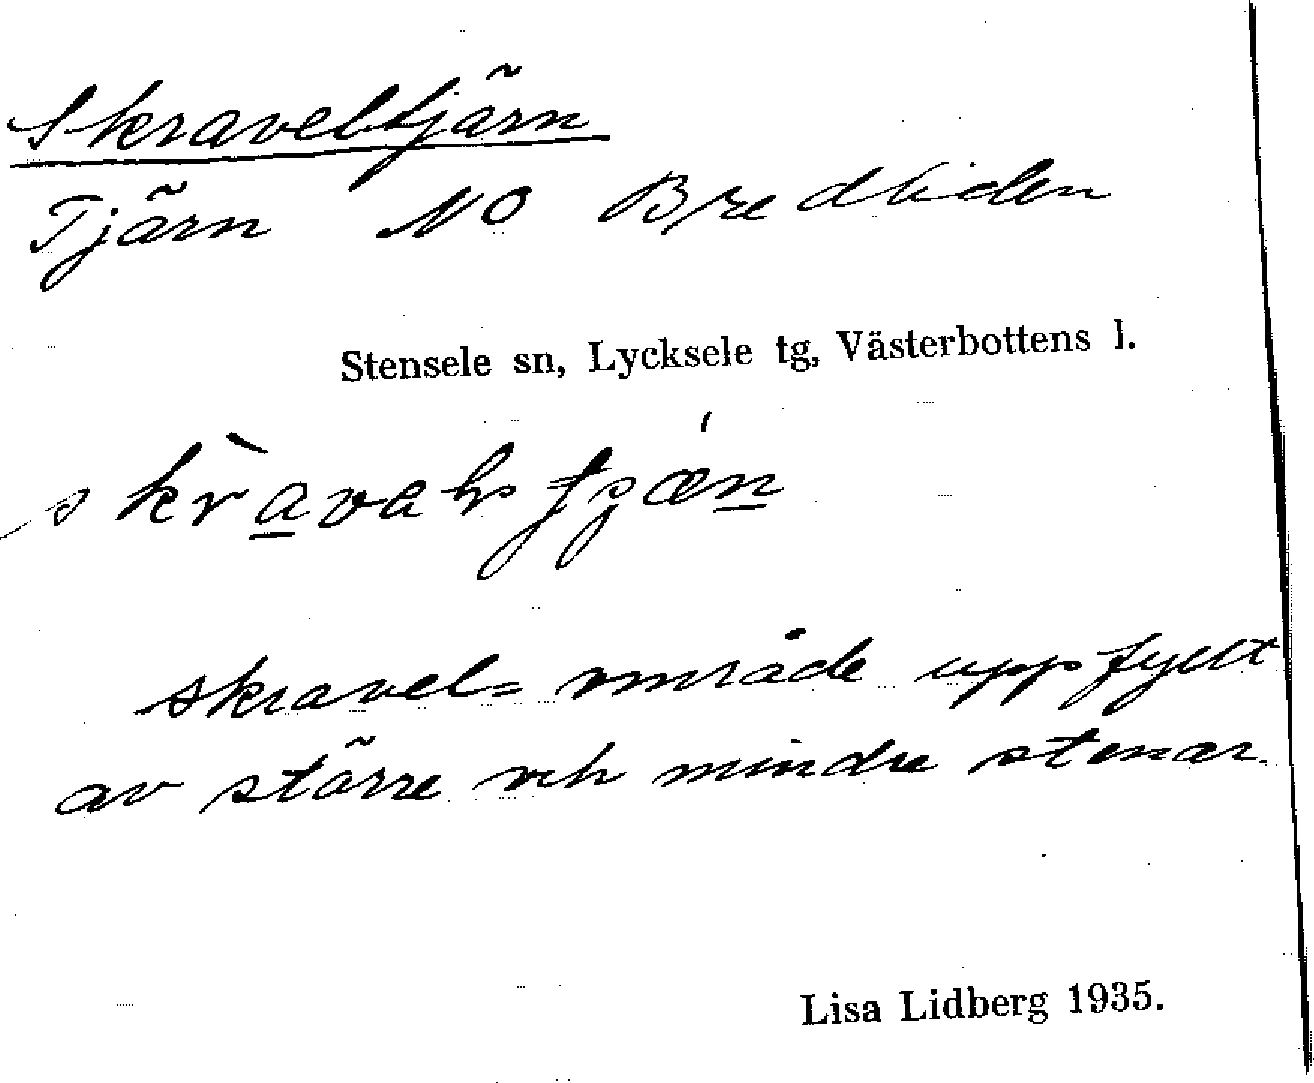 Skraveltjärn
Tjärn NO Bredliden
Stensele sn, Lycksele tg, Västerbottens l.
skravel= område uppfyllt
av större och mindre stenar.
Lisa Lidberg 1935.